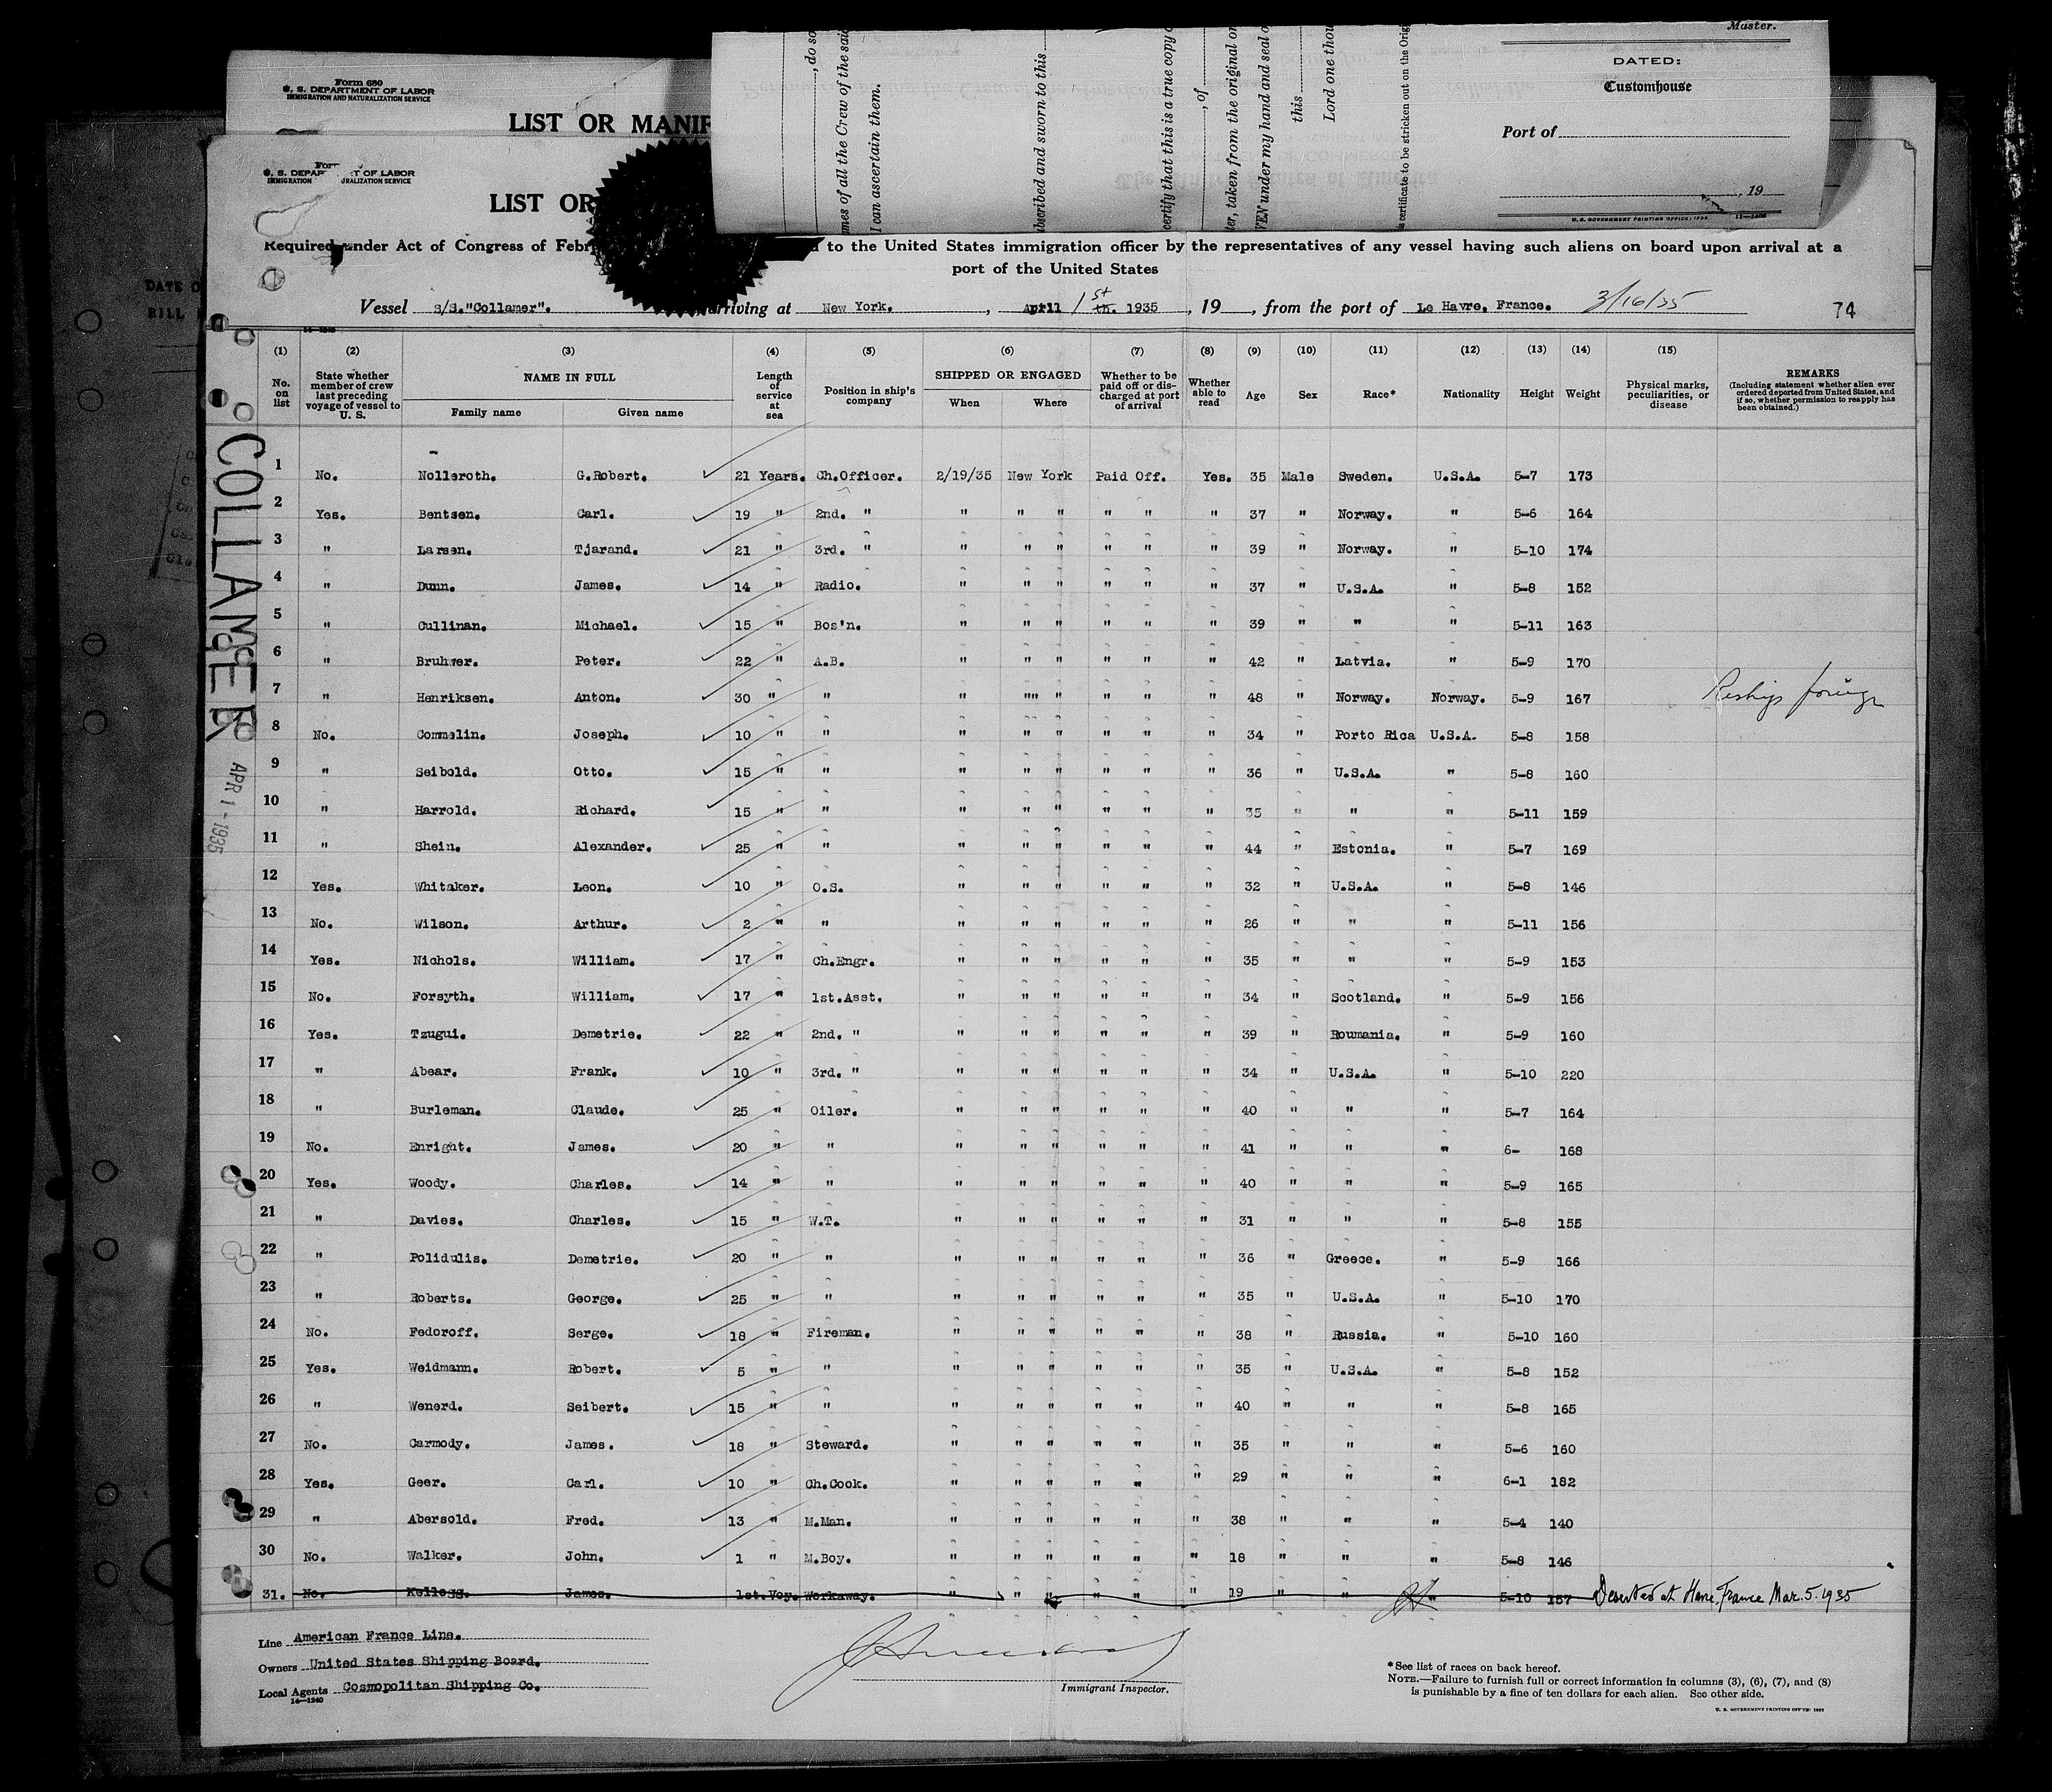 Master.
DATED:
Customhouse
Port of
, 19
U.S. GOVERNMENT PRINTING OFFICE: 1934 11—1406
, do so
ames of all the Crew of the said
I can ascertain them.
ubscribed and sworn to this
certify that this is a true copy o
, of
ter, taken from the original on
VEN under my hand and seal o
this
Lord one thou
certificate to be stricken out on the Orig
Form 680
U. S. DEPARTMENT OF LABOR
IMMIGRATION AND NATURALIZATION SERVICE
LIST OR MANIF
For
U. S. DEPAR T OF LABOR
IMMIGRATION URALIZATION SERVICE
LIST OR
Required under Act of Congress of Febr d to the United States immigration officer by the representatives of any vessel having such aliens on board upon arrival at a
port of the United States
Vessel S/S."Collamer". rriving at New York. , April 1st th. 1935 , 19 , from the port of Le Havre, France. 3/16/35 74
COLLAMER
APR 1 - 1935
(1) (2) (3) (4) (5) (6) (7) (8) (9) (10) (11) (12) (13) (14) (15)
No. on list
State whether member of crew last preceding voyage of vessel to U. S.
NAME IN FULL
Family name Given name
Length of service at sea
Position in ship's company
SHIPPED OR ENGAGED
When Where
Whether to be paid off or discharged at port of arrival
Whether able to read
Age Sex Race* Nationality Height Weight
Physical marks, peculiarities, or disease
REMARKS
(Including statement whether alien ever ordered deported from United States, and if so, whether permission to reapply has been obtained.)
1 No. Nolleroth. G.Robert. 21 Years. Ch.Officer. 2/19/35 New York Paid Off. Yes. 35 Male Sweden. U.S.A. 5-7 173
2 Yes. Bentsen. Carl. 19 " 2nd. " " " " " " " 37 " Norway. " 5-6 164
3 " Larsen. Tjarand. 21 " 3rd. " " " " " " " 39 " Norway. " 5-10 174
4 " Dunn. James. 14 " Radio. " " " " " " 37 " U.S.A. " 5-8 152
5 " Cullinan. Michael. 15 " Bos'n. " " " " " " 39 " " " 5-11 163
6 " Bruhwer. Peter. 22 " A.B. " " " " " " 42 " Latvia. " 5-9 170
7 " Henriksen. Anton. 30 " " " "" " " " " 48 " Norway. Norway. 5-9 167 Reships foreign
8 No. Commelin. Joseph. 10 " " " " " " " " 34 " Porto Rica U.S.A. 5-8 158
9 " Seibold. Otto. 15 " " " " " " " " 36 " U.S.A. " 5-8 160
10 " Harrold. Richard. 15 " " " " " " " " 35 " " " 5-11 159
11 " Shein. Alexander. 25 " " " " " " " " 44 " Estonia. " 5-7 169
12 Yes. Whitaker. Leon. 10 " O.S. " " " " " " 32 " U.S.A. " 5-8 146
13 No. Wilson. Arthur. 2 " " " " " " " " 26 " " " 5-11 156
14 Yes. Nichols. William. 17 " Ch.Engr. " " " " " " 35 " " " 5-9 153
15 No. Forsyth. William. 17 " 1st.Asst. " " " " " " 34 " Scotland. " 5-9 156
16 Yes. Tzugui. Demetrie. 22 " 2nd. " " " " " " " 39 " Roumania. " 5-9 160
17 " Abear. Frank. 10 " 3rd. " " " " " " " 34 " U.S.A. " 5-10 220
18 " Burleman. Claude. 25 " Oiler. " " " " " " 40 " " " 5-7 164
19 No. Enright. James. 20 " " " " " " " " 41 " " " 6- 168
20 Yes. Woody. Charles. 14 " " " " " " " " 40 " " " 5-9 165
21 " Davies. Charles. 15 " W.T. " " " " " " 31 " " " 5-8 155
22 " Polidulis. Demetrie. 20 " " " " " " " " 36 " Greece. " 5-9 166
23 " Roberts. George. 25 " " " " " " " " 35 " U.S.A. " 5-10 170
24 No. Fedoroff. Serge. 18 " Fireman. " " " " " " 38 " Russia. " 5-10 160
25 Yes. Weidmann. Robert. 5 " " " " " " " " 35 " U.S.A. " 5-8 152
26 " Wenerd. Seibert. 15 " " " " " " " " 40 " " " 5-8 165
27 No. Carmody. James. 18 " Steward. " " " " " " 35 " " " 5-6 160
28 Yes. Geer. Carl. 10 " Ch.Cook. " " " " " " 29 " " " 6-1 182
29 " Abersold. Fred. 13 " M.Man. " " " " " " 38 " " " 5-4 140
30 No. Walker. John. 1 " M.Boy. " " " " " " 18 " " " 5-8 146
31. No. Kellogg. James. 1st.Voy. Workaway. " " " " " " 19 " " " 5-10 157 Deserted at Havre, France Mar. 5. 1935
Line American France Line.
Owners United States Shipping Board.
Local Agents Cosmopolitan Shipping Co.
14—1240
Immigrant Inspector.
*See list of races on back hereof.
NOTE.—Failure to furnish full or correct information in columns (3), (6), (7), and (8)
is punishable by a fine of ten dollars for each alien. See other side.
U. S. GOVERNMENT PRINTING OFFICE: 1933